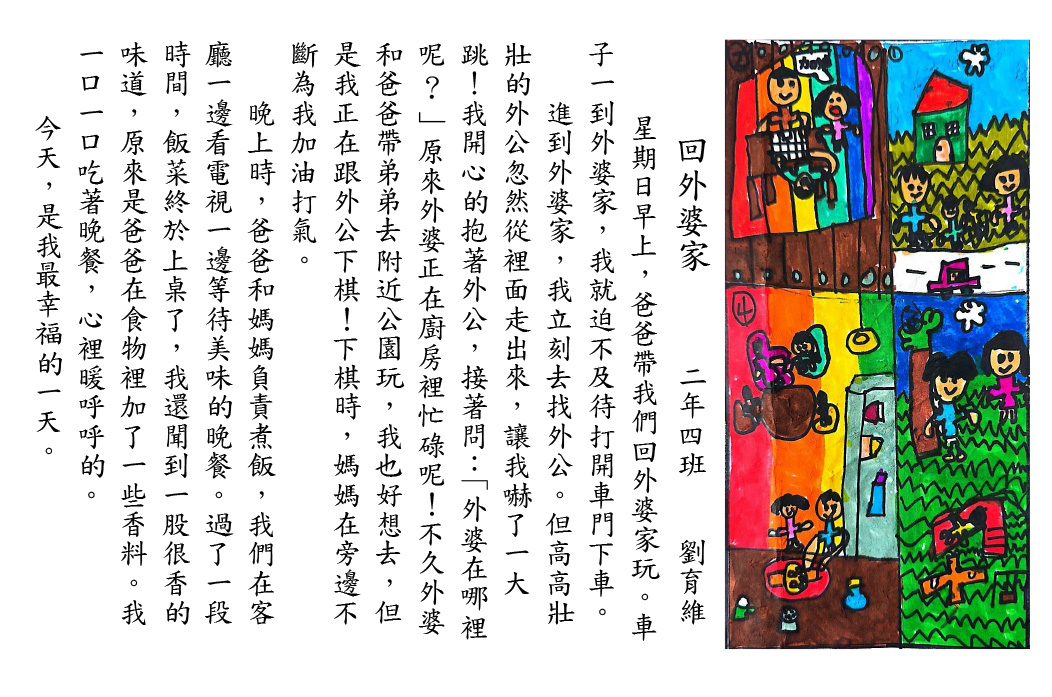 回外婆家 二年四班 劉育維
星期日早上，爸爸帶我們回外婆家玩。車
子一到外婆家，我就迫不及待打開車門下車。
進到外婆家，我立刻去找外公。但高高壯
壯的外公忽然從裡面走出來，讓我嚇了一大
跳！我開心的抱著外公，接著問：「外婆在哪裡
呢？」原來外婆正在廚房裡忙碌呢！不久外婆
和爸爸帶弟弟去附近公園玩，我也好想去，但
是我正在跟外公下棋！下棋時，媽媽在旁邊不
斷為我加油打氣。
晚上時，爸爸和媽媽負責煮飯，我們在客
廳一邊看電視一邊等待美味的晚餐。過了一段
時間，飯菜終於上桌了，我還聞到一股很香的
味道，原來是爸爸在食物裡加了一些香料。我
一口一口吃著晚餐，心裡暖呼呼的。
今天，是我最幸福的一天。
④